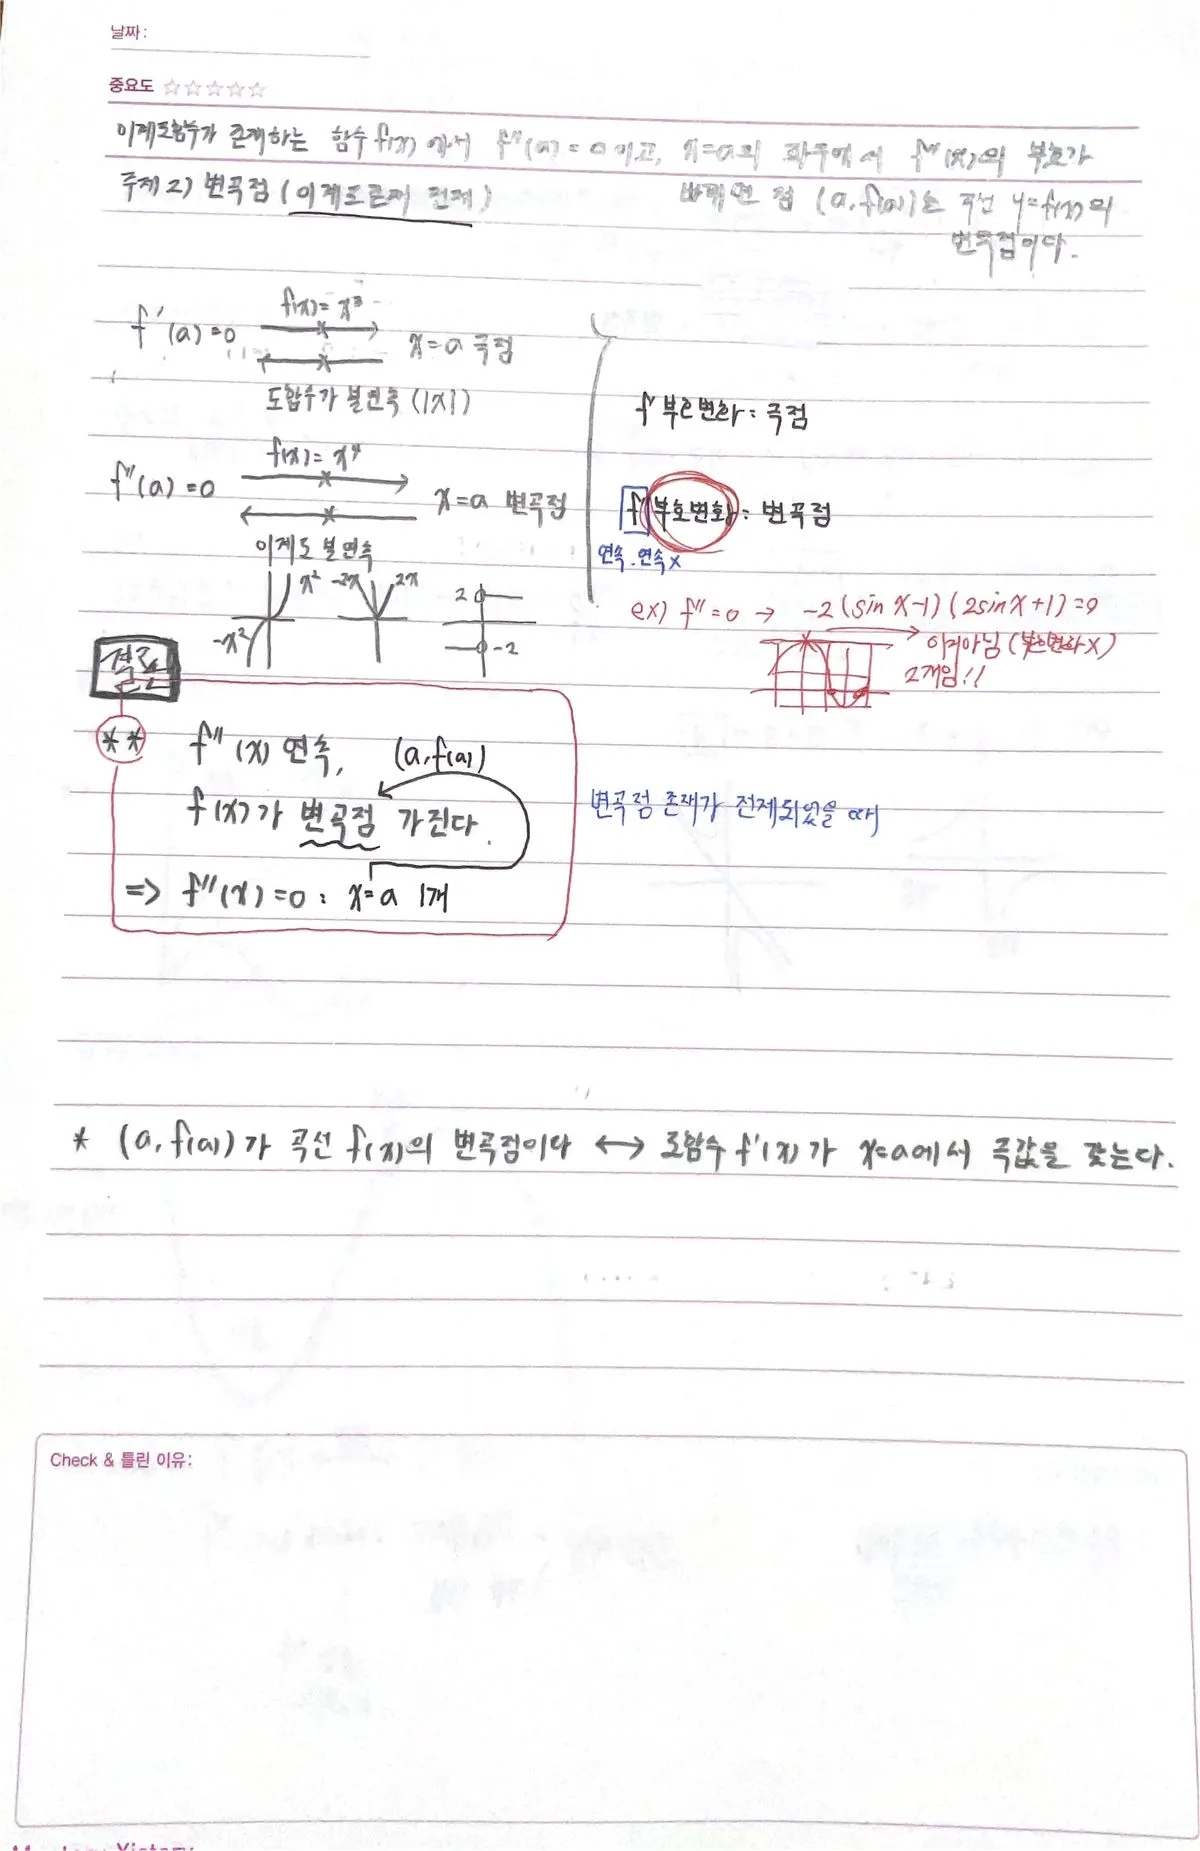 날짜:
중요도 ☆☆☆☆☆
이계도함수가 존재하는 함수 f(x) 에서 f''(a) = 0 이고, x=a의 좌우에서 f''(x)의 부호가
바뀌면 점 (a, f(a))는 곡선 y=f(x)의
변곡점이다.
주제2) 변곡점 (이계도 존재 전제)
f'(a)=0
f(x)= x³
x=a 극점
도함수가 불연속 (|x|)
f''(a)=0
f(x)= x⁴
x=a 변곡점
이계도 불연속
x²
-x²
-2x
2x
2
-2
f' 부호변화 : 극점
f'' 부호변화 : 변곡점
연속. 연속x
ex) f''=0 → -2(sin x-1)(2sin x+1)=0
이거아님 (부호변화 x)
2개임!!
결론
** f''(x) 연속, (a, f(a))
f(x)가 변곡점 가진다.
=> f''(x)=0 : x=a 1개
변곡점 존재가 전제되었을 때
* (a, f(a))가 곡선 f(x)의 변곡점이다 ↔ 도함수 f'(x)가 x=a에서 극값을 갖는다.
Check & 틀린 이유: